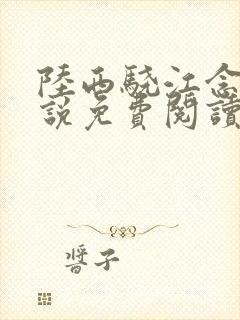 陸西驍江念
說免費閱讀
醬子